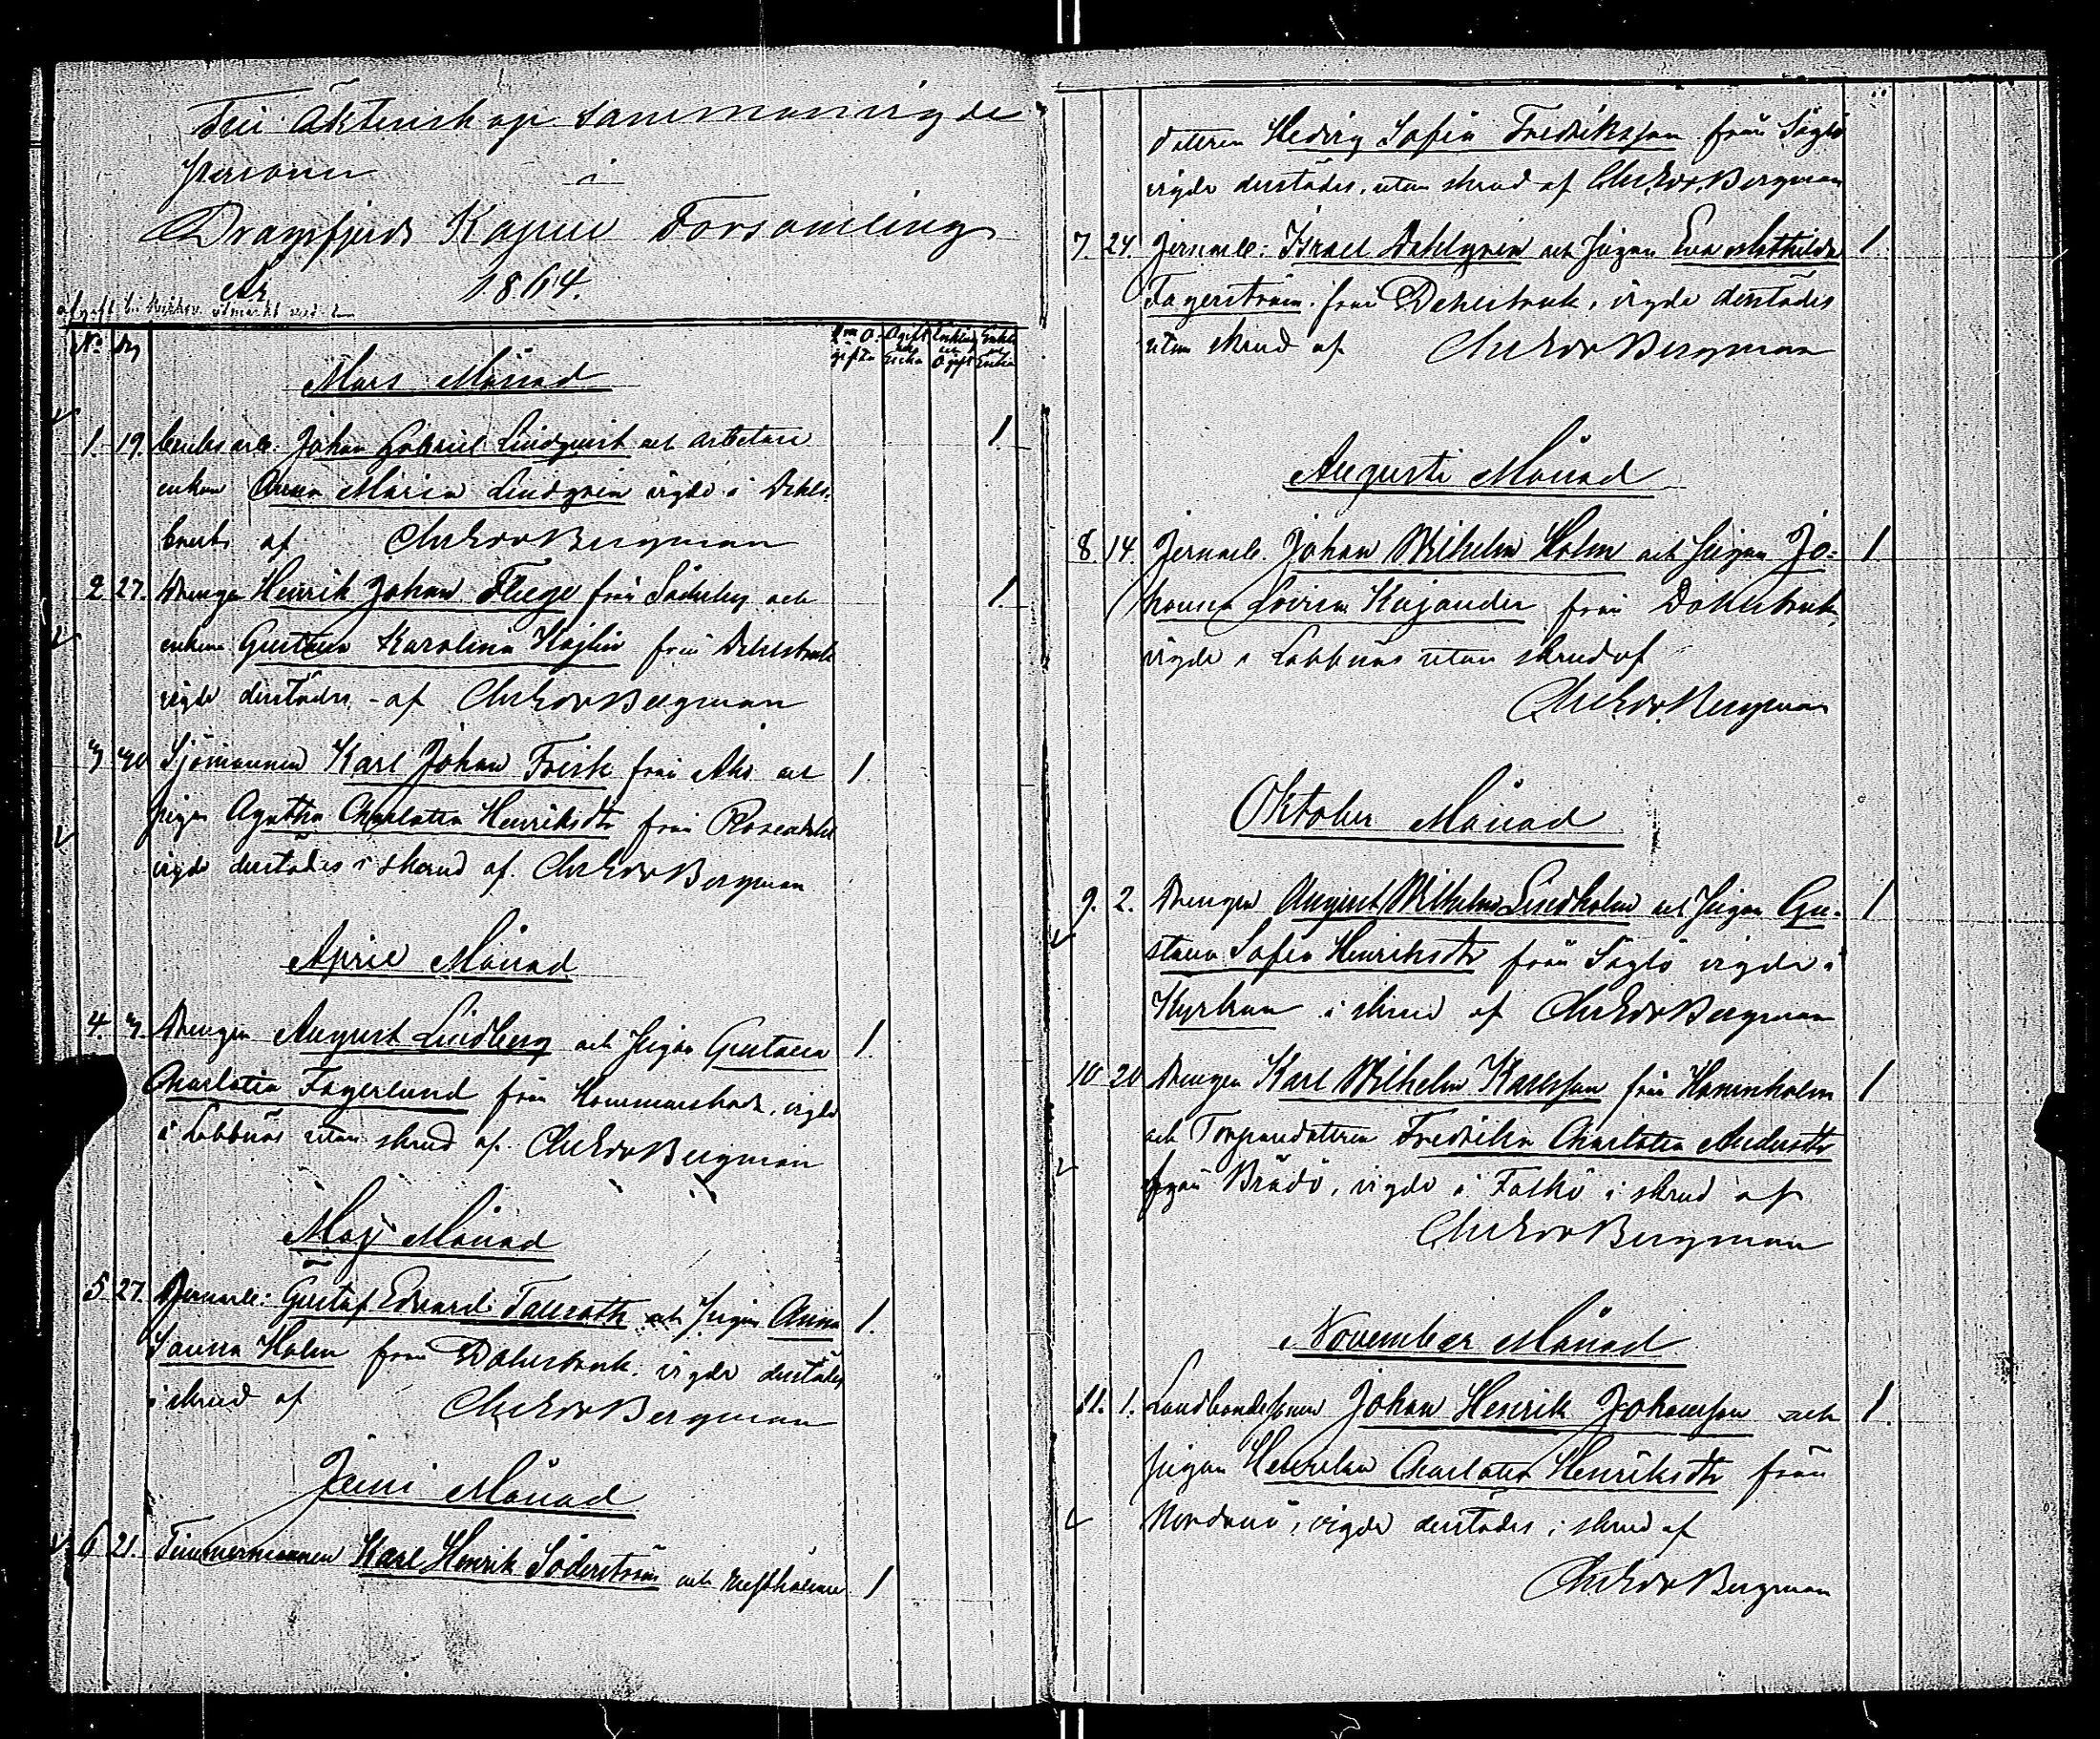 Till Äktenskap Sammanvigde
personer i
Dragsfjerds Kapell Församling
År 1864.
No Dag
Två Ogifta Ogift och Enka Enkling och Ogift Enkling och Enka
Mars Månad
1. 19. Bruks arb. Johan Gabriel Lindqvist och arbetare 1.
enkan Anna Maria Lindgren vigde i Dahls-
bruk af Chr Edv Bergman
2 27. Drengen Henrik Johan Flege från Söderby och 1.
enkan Gustava Karolina Höglin från Dahlsbruk
vigde derstädes af Chr Edv Bergman
3 30 Sjömannen Karl Johan Frisk från Åbo och 1.
pigan Agatha Charlotta Henriksdtr från Rosendahl
vigde derstädes i skrud af Chr Edv Bergman
April Månad
4. 3. Drengen August Lindberg och Pigan Gustava 1.
Charlotta Fagerlund från Hammarsboda, vigde
i Labbnäs utan skrud af Chr Edv Bergman
Maj Månad
5 27. Jernarb: Gustaf Edvard Tallroth och Pigan Anna 1.
Sanna Holm från Dahlsbruk. vigde derstädes
i skrud af Chr Edv Bergman
Juni Månad
6 21. Timmermannen Karl Henrik Söderström och 1
dottren Hedvig Sofia Fredriksson från Söglö
vigde derstädes, utan skrud af Chr. Edv. Bergman
7. 24. Jernarb: Israel Dahlgren och Pigan Eva Mathilda 1.
Fagerström från Dahlsbruk, vigde derstädes
utan skrud af Chr Edv Bergman
Augusti Månad
8. 14. Jernarb. Johan Wilhelm Holm och Pigan Jo- 1
hanna Lovisa Kejander från Dahlsbruk,
vigde i Labbnäs utan skrud af
Chr Edv. Bergman
Oktober Månad
9. 2. Drengen August Wilhelm Lindholm och Pigan Gu- 1
stava Sofia Henriksdtr från Söglö vigde i
Kyrkan i skrud af Chr Edv Bergman
10 20 Drengen Karl Wilhelm Karlsson från Hammholm 1
och Torparedottren Fredrika Charlotta Andersdtr
från Brädö, vigde i Falkö i skrud af
Chr Edv Bergman
November Månad
11. 1. Landbondesonen Johan Henrik Johansson och 1.
pigan Henrika Charlotta Henriksdtr från
Nordanå, vigde derstädes i skrud af
Chr Edv Bergman